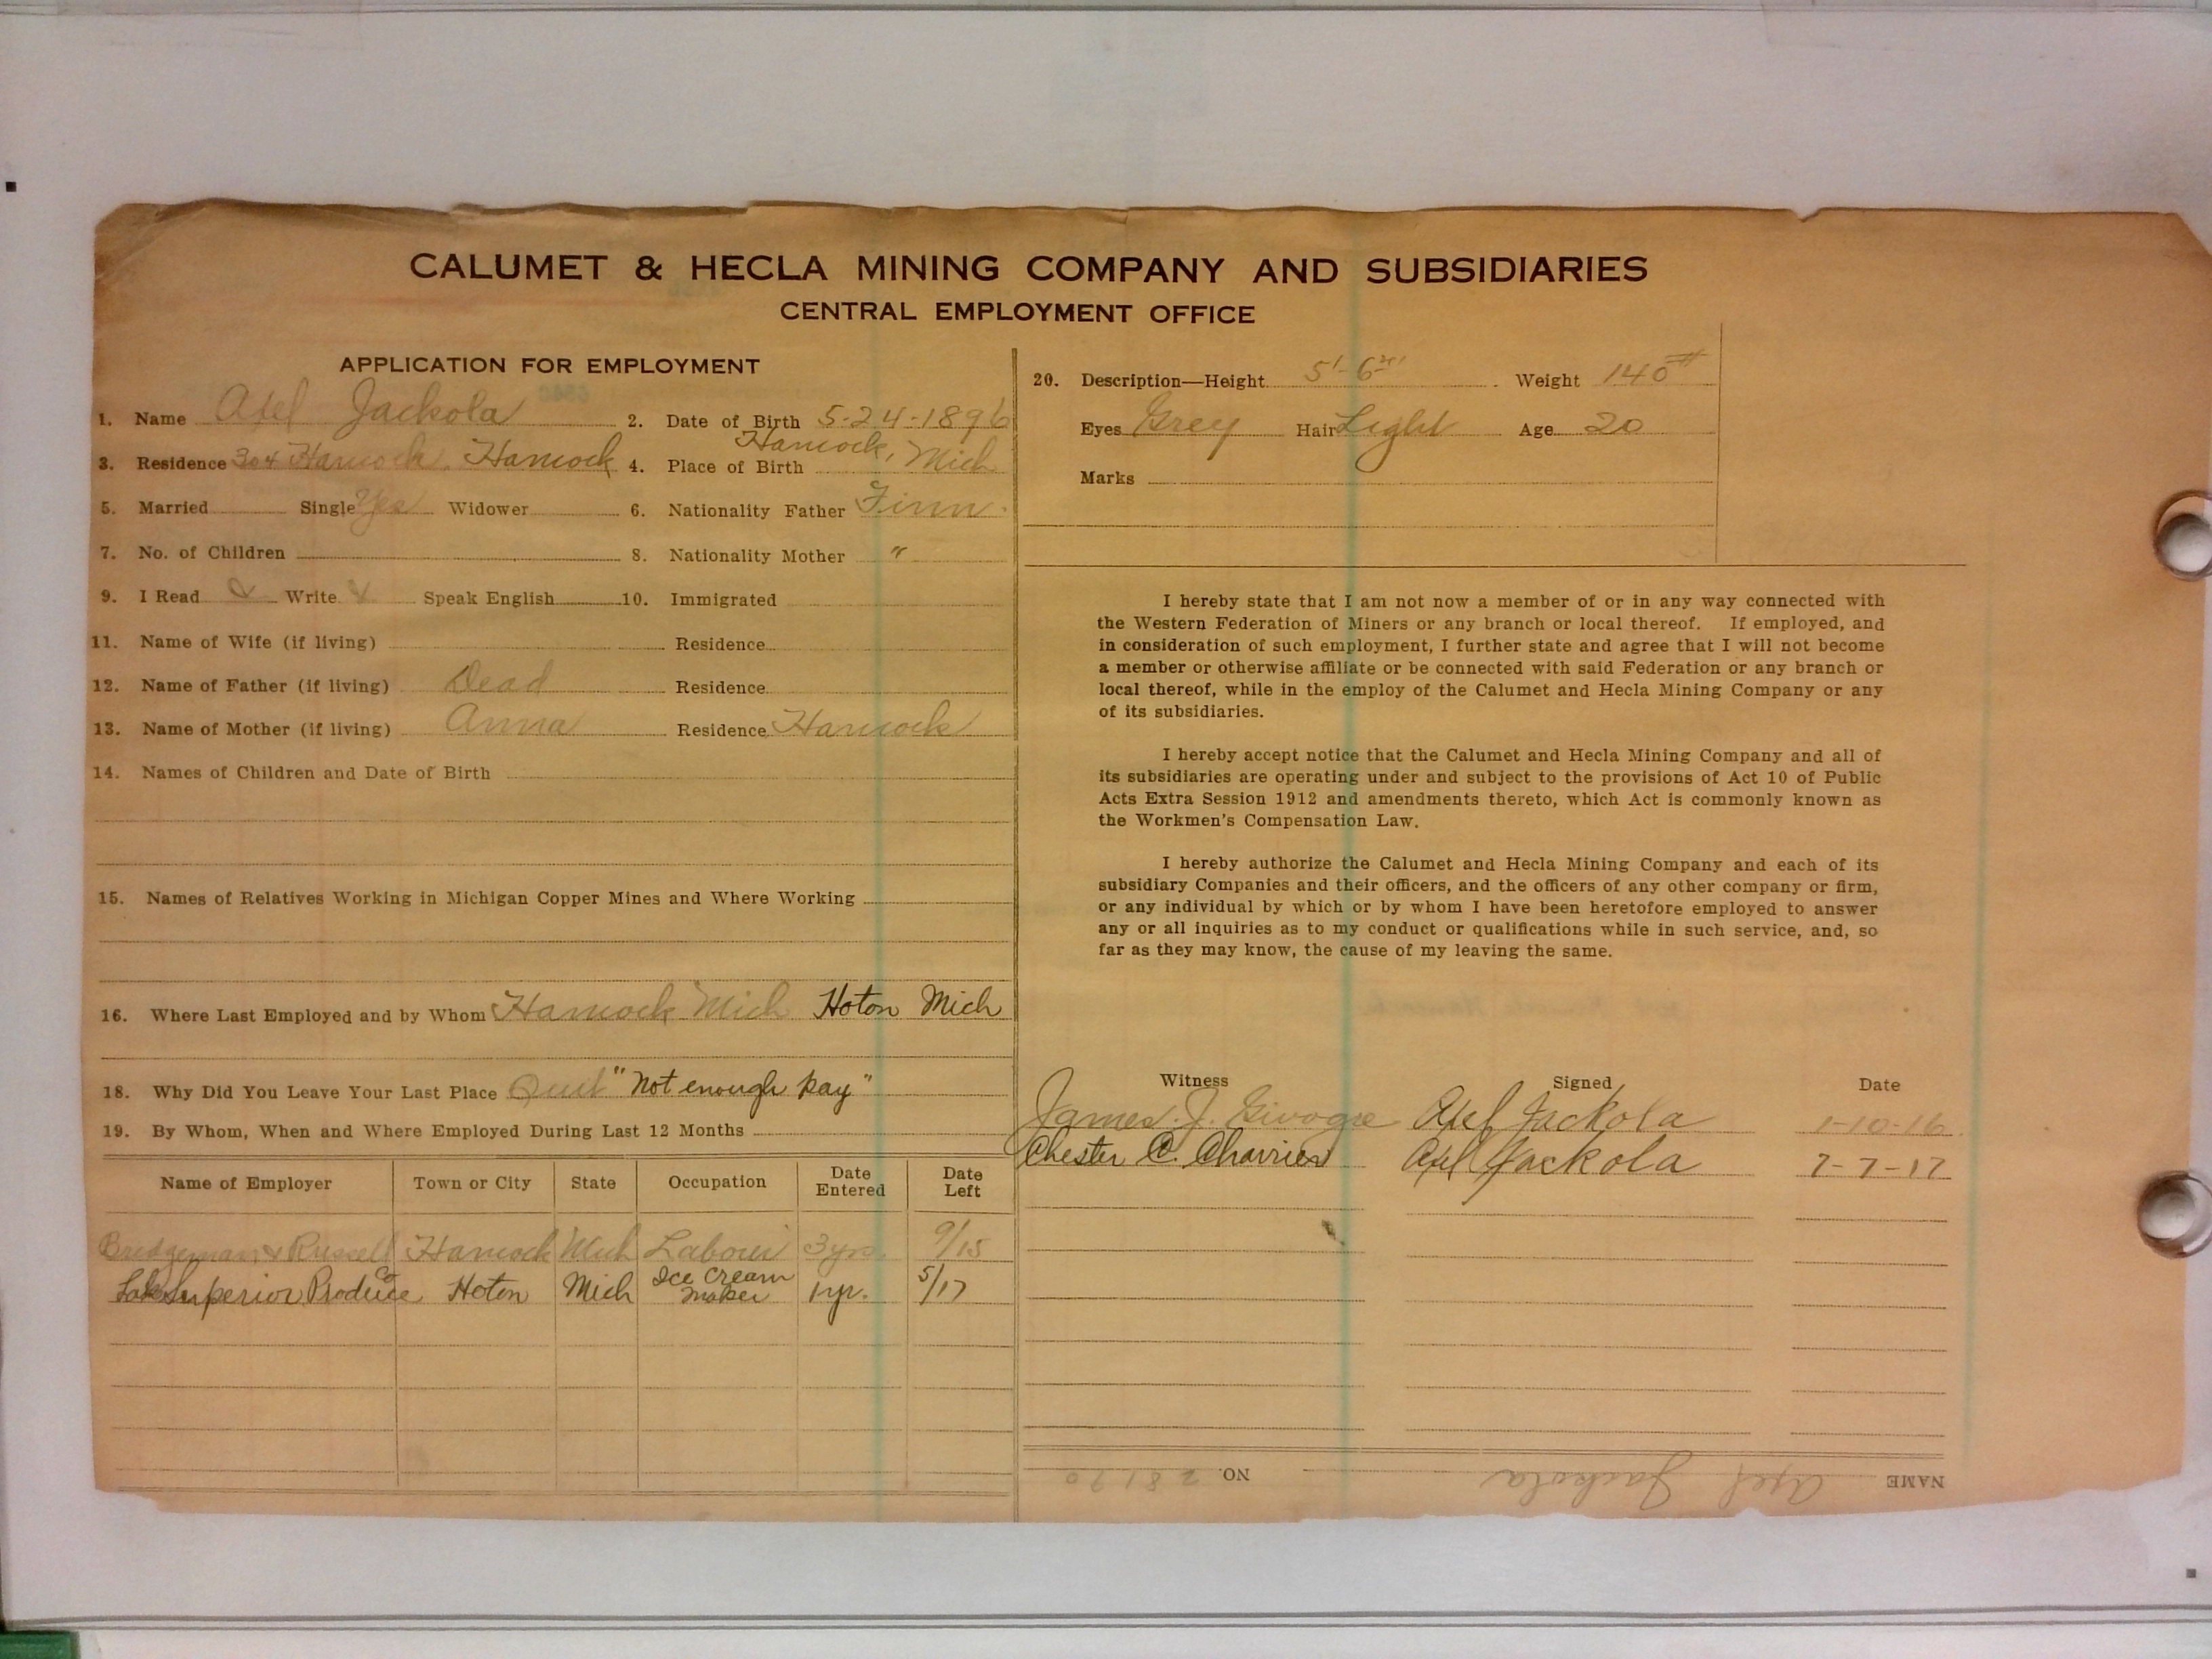 CALUMET & HECLA MINING COMPANY AND SUBSIDIARIES
CENTRAL EMPLOYMENT OFFICE
APPLICATION FOR EMPLOYMENT
1. Name Axel Jackola 2. Date of Birth 5-24-1896
3. Residence 304 Hancock, Hancock 4. Place of Birth Hancock, Mich
5. Married Single Yes Widower 6. Nationality Father Finn.
7. No. of Children 8. Nationality Mother "
9. I Read Write Speak English 10. Immigrated
11. Name of Wife (if living) Residence
12. Name of Father (if living) Dead Residence
13. Name of Mother (if living) Anna Residence Hancock
14. Names of Children and Date of Birth
15. Names of Relatives Working in Michigan Copper Mines and Where Working
16. Where Last Employed and by Whom Hancock Mich Hoton Mich
18. Why Did You Leave Your Last Place Quit "Not enough pay"
19. By Whom, When and Where Employed During Last 12 Months
Name of Employer Town or City State Occupation Date Entered Date Left
Bridgeman & Russell Hancock Mich Labour 3 yrs. 9/15
Lake Superior Produce Co Hoton Mich Ice Cream Maker 1 yr. 5/17
20. Description—Height 5'-6" Weight 140#
Eyes Grey Hair Light Age 20
Marks
I hereby state that I am not now a member of or in any way connected with
the Western Federation of Miners or any branch or local thereof. If employed, and
in consideration of such employment, I further state and agree that I will not become
a member or otherwise affiliate or be connected with said Federation or any branch or
local thereof, while in the employ of the Calumet and Hecla Mining Company or any
of its subsidiaries.
I hereby accept notice that the Calumet and Hecla Mining Company and all of
its subsidiaries are operating under and subject to the provisions of Act 10 of Public
Acts Extra Session 1912 and amendments thereto, which Act is commonly known as
the Workmen's Compensation Law.
I hereby authorize the Calumet and Hecla Mining Company and each of its
subsidiary Companies and their officers, and the officers of any other company or firm,
or any individual by which or by whom I have been heretofore employed to answer
any or all inquiries as to my conduct or qualifications while in such service, and, so
far as they may know, the cause of my leaving the same.
Witness Signed Date
James J. Axel Jackola 1-10-16
Chester C. Axel Jackola 7-7-17
NAME Axel Jackola NO. 28170